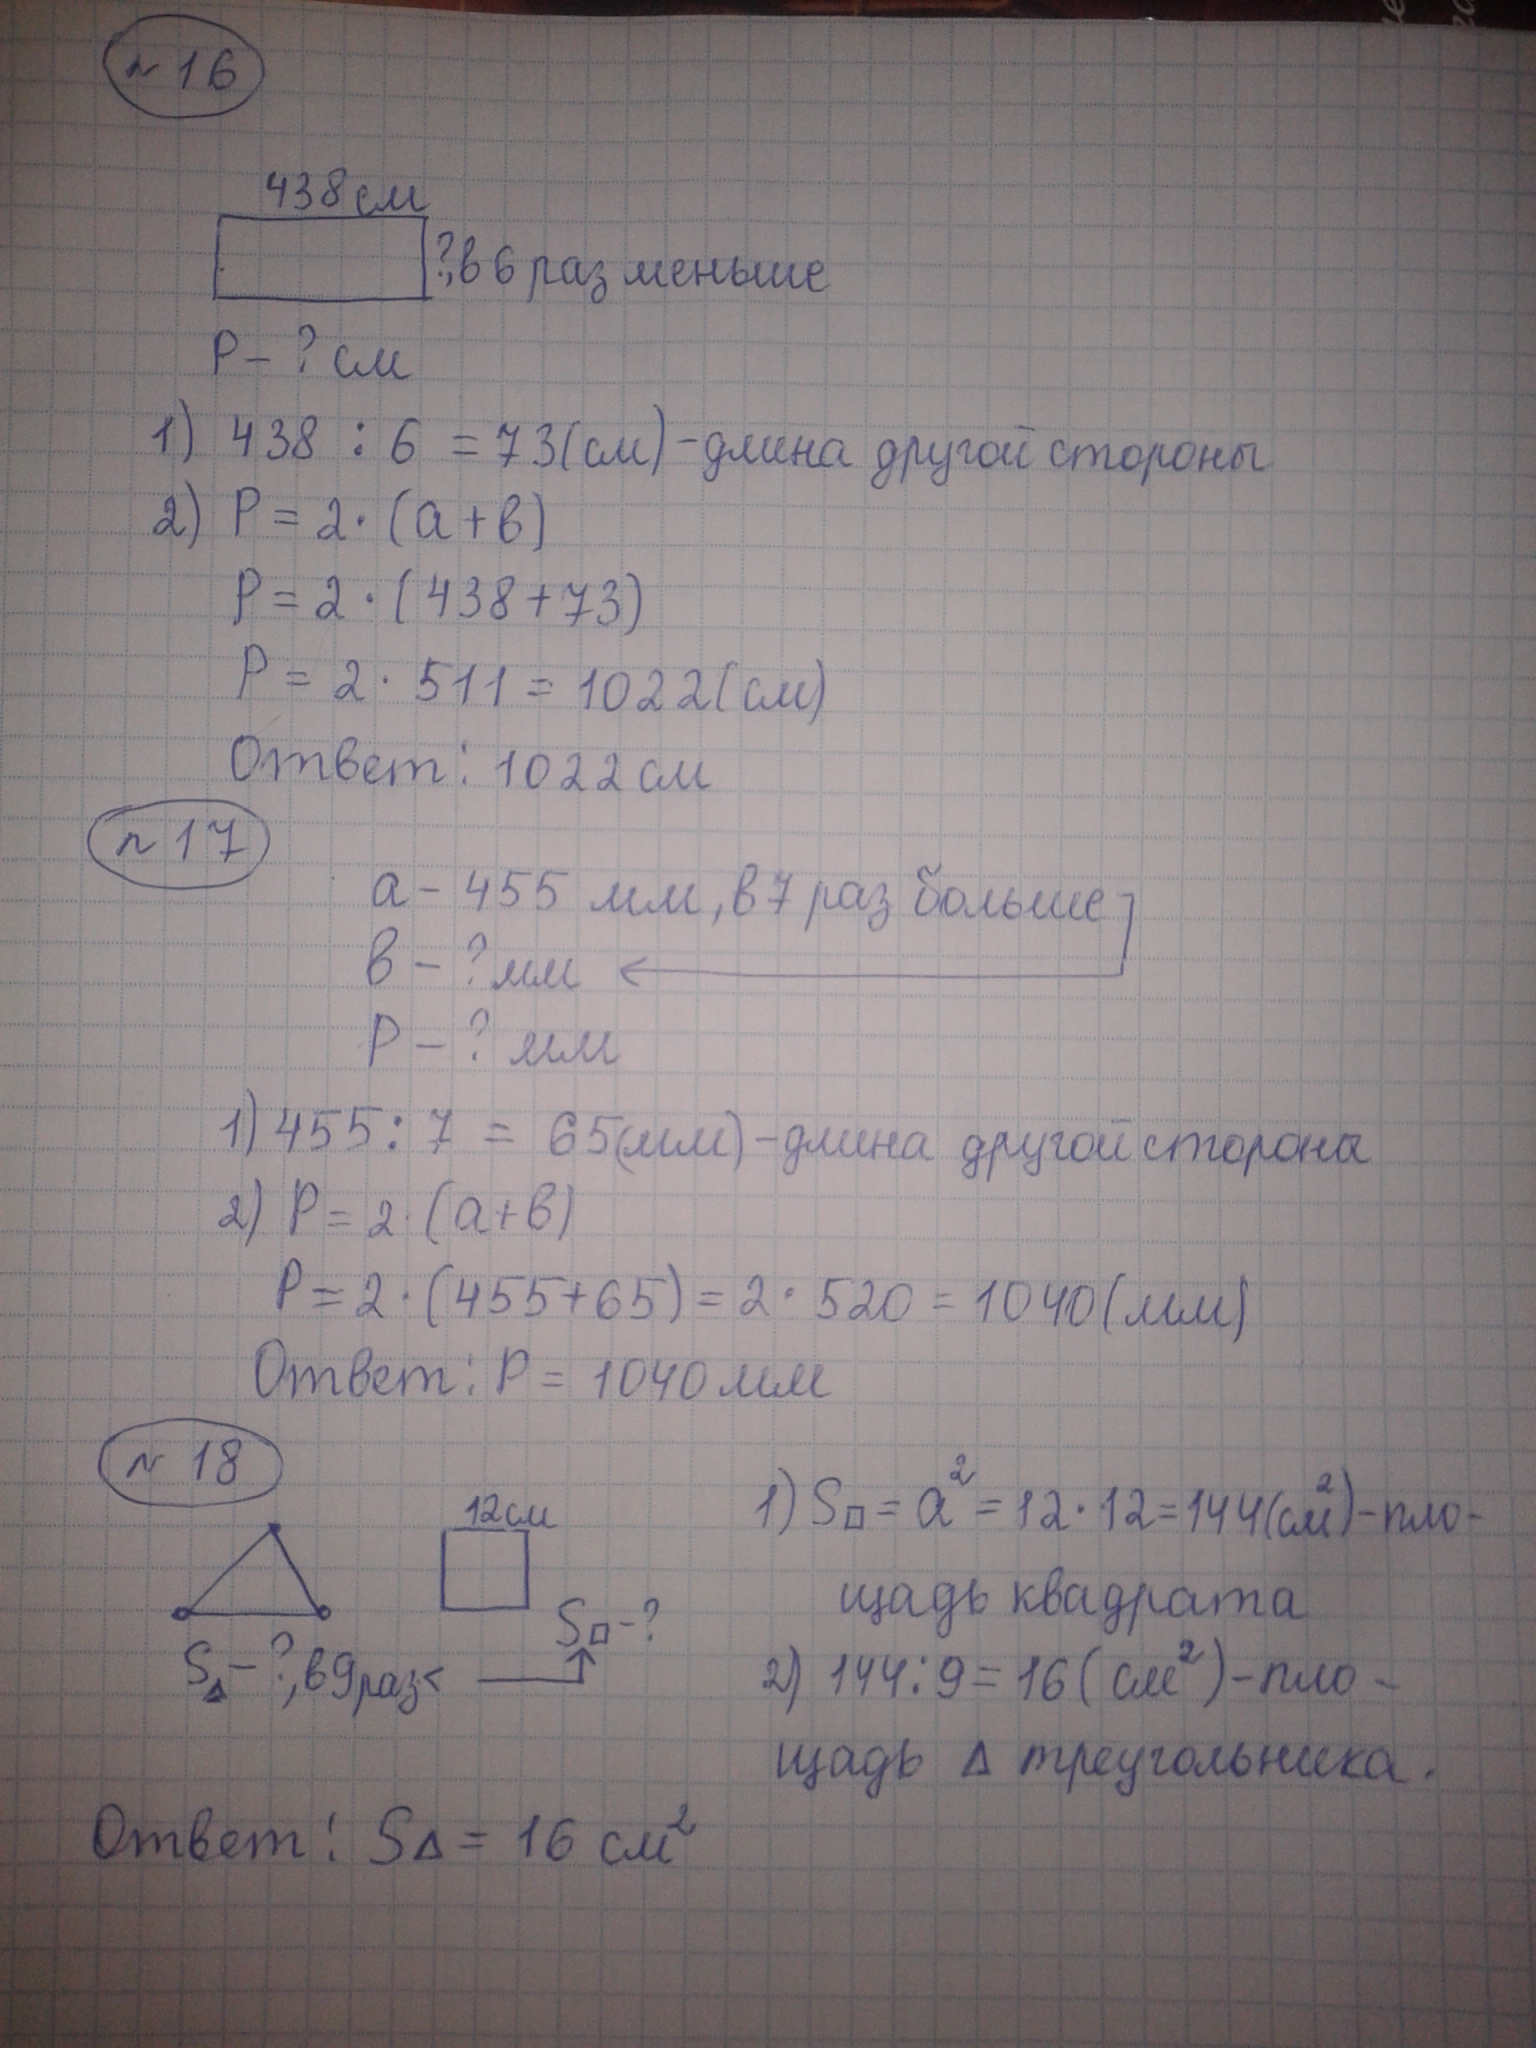 № 16
438 см
?, в 6 раз меньше
P - ? см
1) 438 : 6 = 73 (см) - длина другой стороны
2) P = 2 · (а + в)
P = 2 · (438 + 73)
P = 2 · 511 = 1022 (см)
Ответ: 1022 см
№ 17
а - 455 мм, в 7 раз больше
в - ? мм
P - ? мм
1) 455 : 7 = 65 (мм) - длина другой сторона
2) P = 2 · (а + в)
P = 2 · (455 + 65) = 2 · 520 = 1040 (мм)
Ответ: P = 1040 мм
№ 18
12 см
S□ - ?
S△ - ?, в 9 раз <
1) S□ = a² = 12 · 12 = 144 (см²) - пло-
щадь квадрата
2) 144 : 9 = 16 (см²) - пло-
щадь △ треугольника.
Ответ: S△ = 16 см²